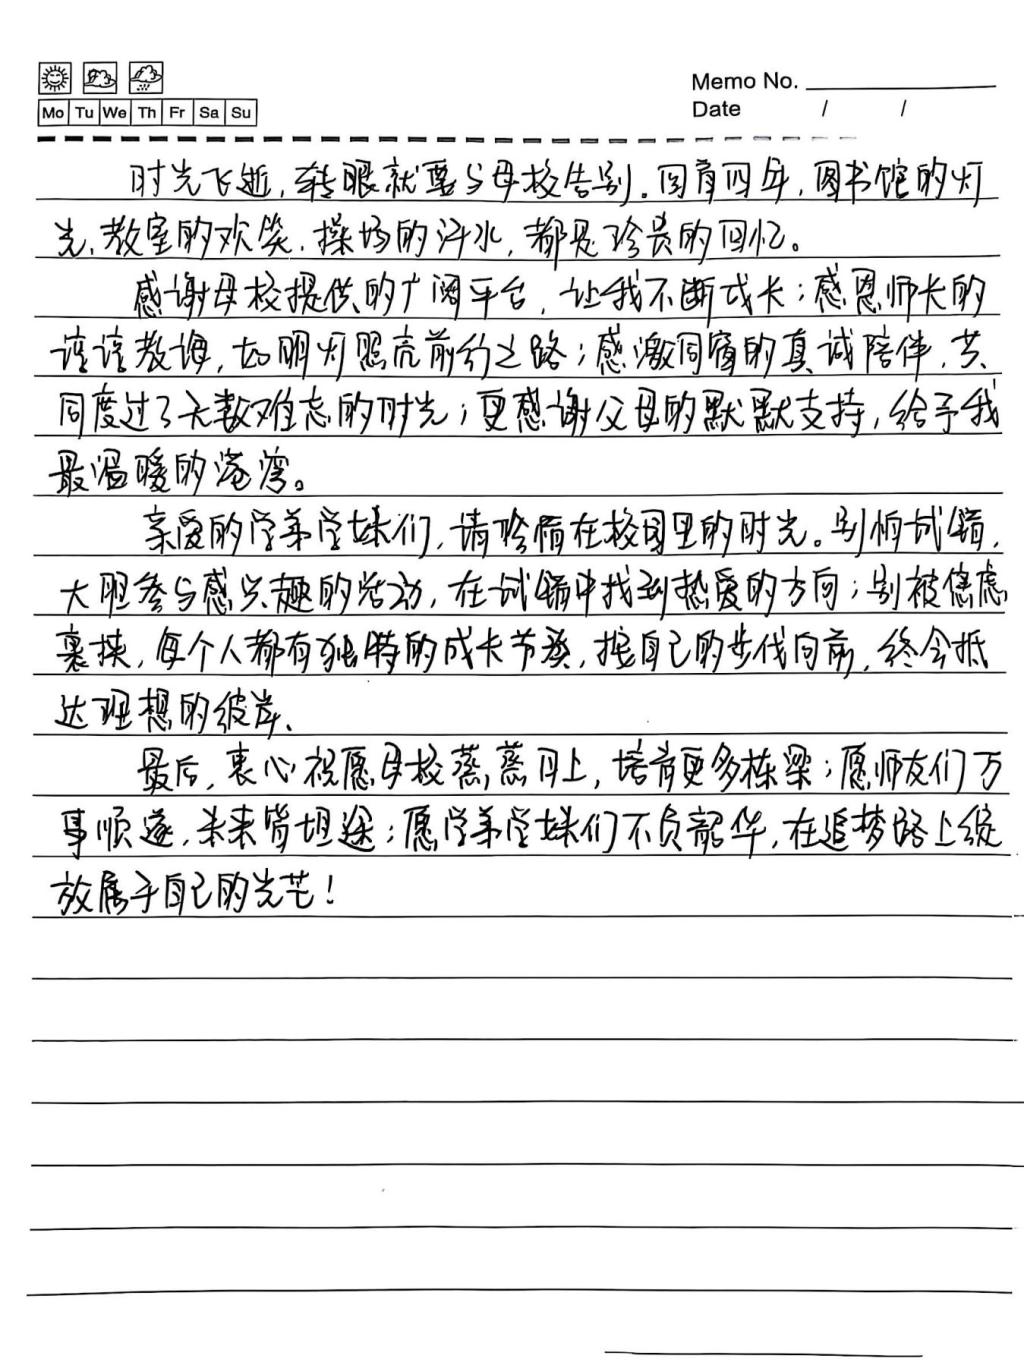 Memo No.
Mo Tu We Th Fr Sa Su
Date / /
时光飞逝,转眼就要与母校告别.回首四年,图书馆的灯
光,教室的欢笑,操场的汗水,都是珍贵的回忆。
感谢母校提供的广阔平台,让我不断成长;感恩师长的
谆谆教诲,如明灯照亮前行之路;感激同窗的真诚陪伴,共
同度过了无数难忘的时光;更感谢父母的默默支持,给予我
最温暖的港湾。
亲爱的学弟学妹们,请珍惜在校园里的时光。别怕试错,
大胆参与感兴趣的活动,在试错中找到热爱的方向;别被焦虑
裹挟,每个人都有独特的成长节奏,按自己的步伐向前,终会抵
达理想的彼岸、
最后,衷心祝愿母校蒸蒸日上,培育更多栋梁;愿师友们万
事顺遂,未来皆坦途;愿学弟学妹们不负韶华,在追梦路上绽
放属于自己的光芒!